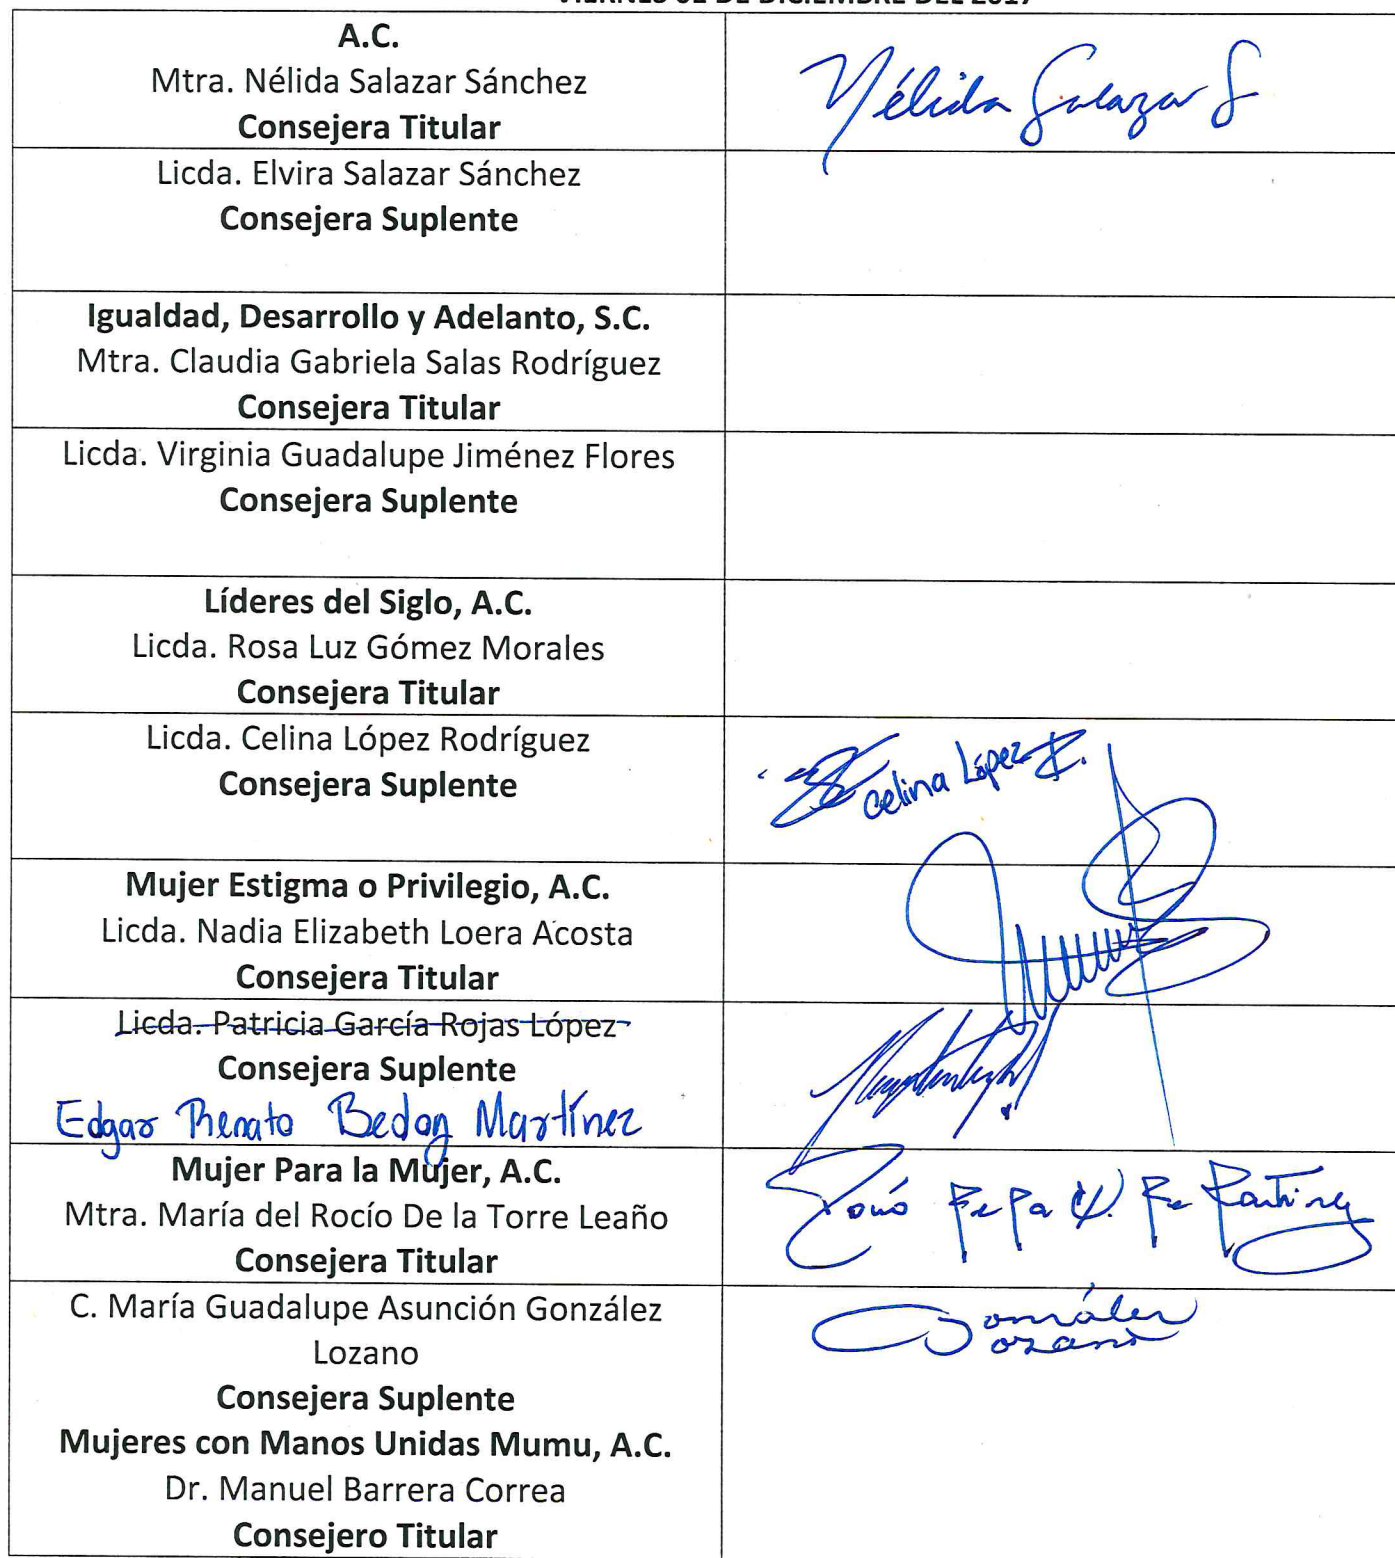 VIERNES 02 DE DICIEMBRE DEL 2017
A.C.
Mtra. Nélida Salazar Sánchez
Consejera Titular
Nélida Salazar S
Licda. Elvira Salazar Sánchez
Consejera Suplente
Igualdad, Desarrollo y Adelanto, S.C.
Mtra. Claudia Gabriela Salas Rodríguez
Consejera Titular
Licda. Virginia Guadalupe Jiménez Flores
Consejera Suplente
Líderes del Siglo, A.C.
Licda. Rosa Luz Gómez Morales
Consejera Titular
Licda. Celina López Rodríguez
Consejera Suplente
Celina López R.
Mujer Estigma o Privilegio, A.C.
Licda. Nadia Elizabeth Loera Acosta
Consejera Titular
Licda. Patricia García Rojas López
Consejera Suplente
Edgar Renato Bedoy Martínez
Mujer Para la Mujer, A.C.
Mtra. María del Rocío De la Torre Leaño
Consejera Titular
C. María Guadalupe Asunción González
Lozano
Consejera Suplente
González
Lozano
Mujeres con Manos Unidas Mumu, A.C.
Dr. Manuel Barrera Correa
Consejero Titular